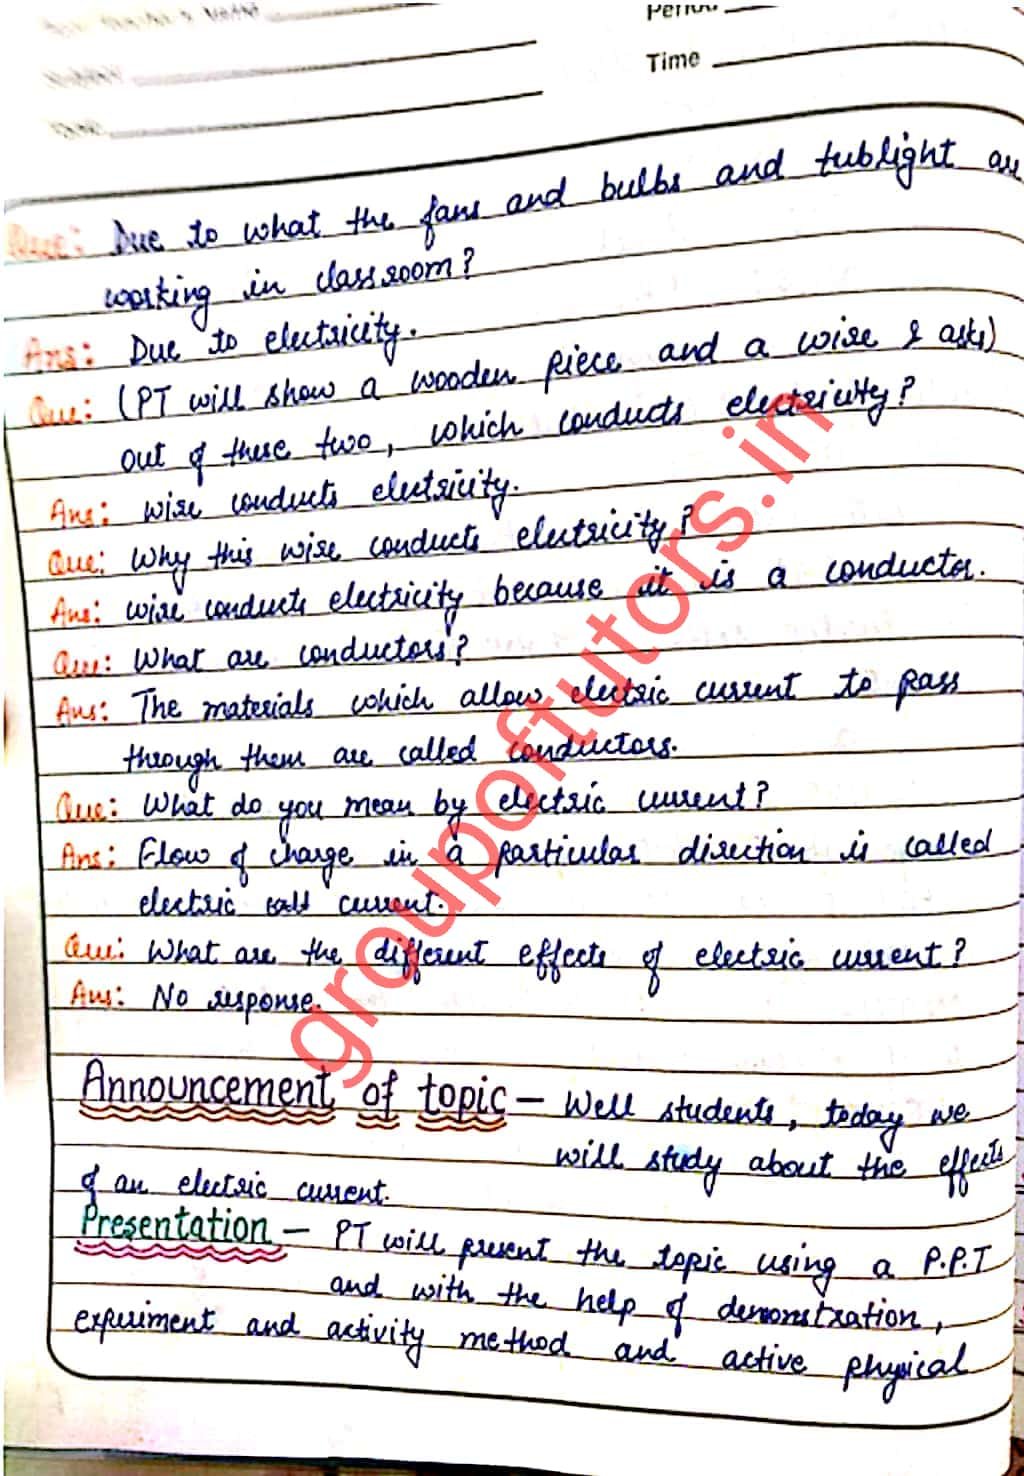 Period
Time
Que: Due to what the fans and bulbs and tublight are
working in classroom?
Ans: Due to electricity.
Que: (PT will show a wooden piece and a wire & asks)
out of these two, which conducts electricity?
Ans: wire conducts electricity.
Que: Why this wire conducts electricity?
Ans: wire conducts electricity because it is a conductor.
Que: What are conductors?
Ans: The materials which allow electric current to pass
through them are called conductors.
Que: What do you mean by electric current?
Ans: Flow of charge in a particular direction is called
electric current.
Que: What are the different effects of electric current?
Ans: No response.
Announcement of topic - Well students, today we
will study about the effects
of an electric current.
Presentation - PT will present the topic using a P.P.T
and with the help of demonstration,
experiment and activity method and active physical
groupoftutors.in